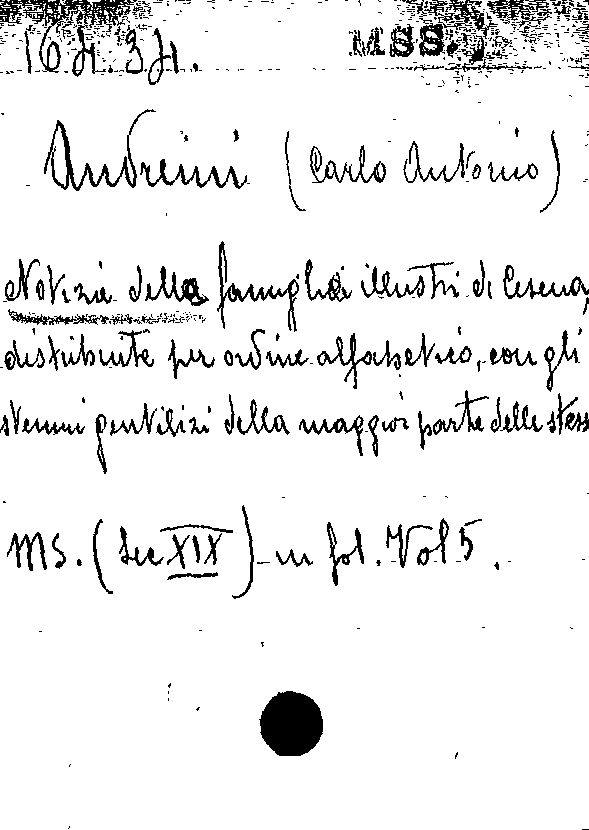 164.34. MSS.
Andreini (Carlo Antonio)
Notizie delle famiglie illustri di Cesena,
distribuite per ordine alfabetico, con gli
stemmi gentilizi della maggior parte delle stess
MS. (Sec XIX) in fol. Vol 5.